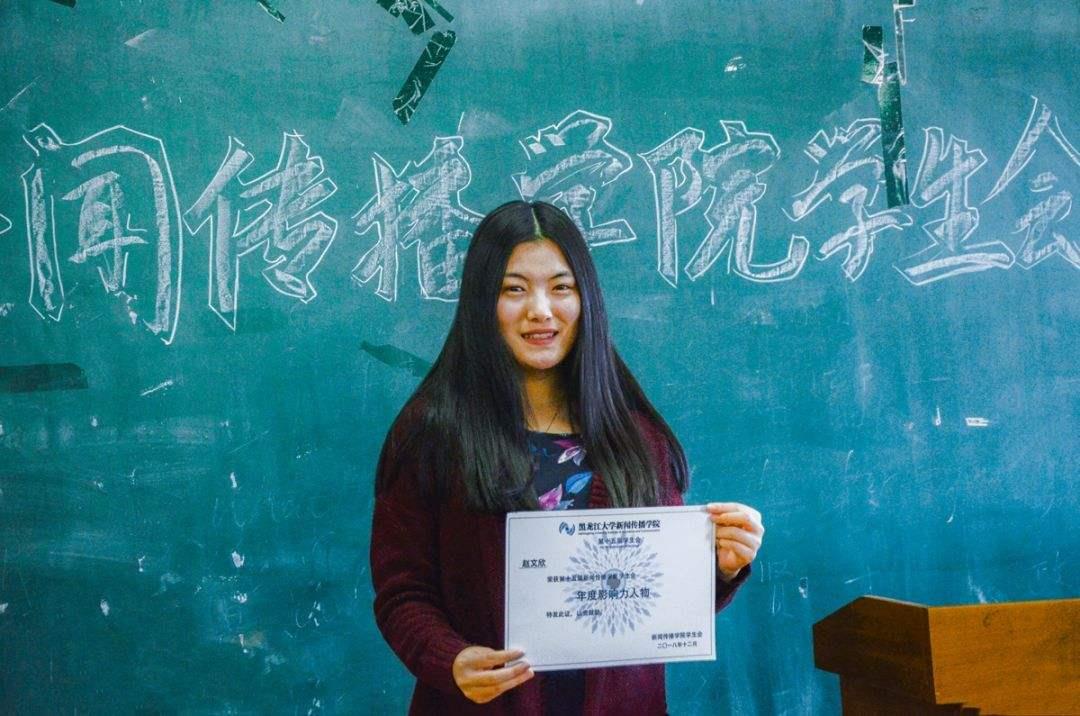 闻传播学院学生会
黑龙江大学新闻传播学院
第十五届学生会
赵文欣
荣获第十五届新闻传播学院学生会
年度影响力人物
特发此证，以资鼓励。
新闻传播学院学生会
二〇一八年十二月